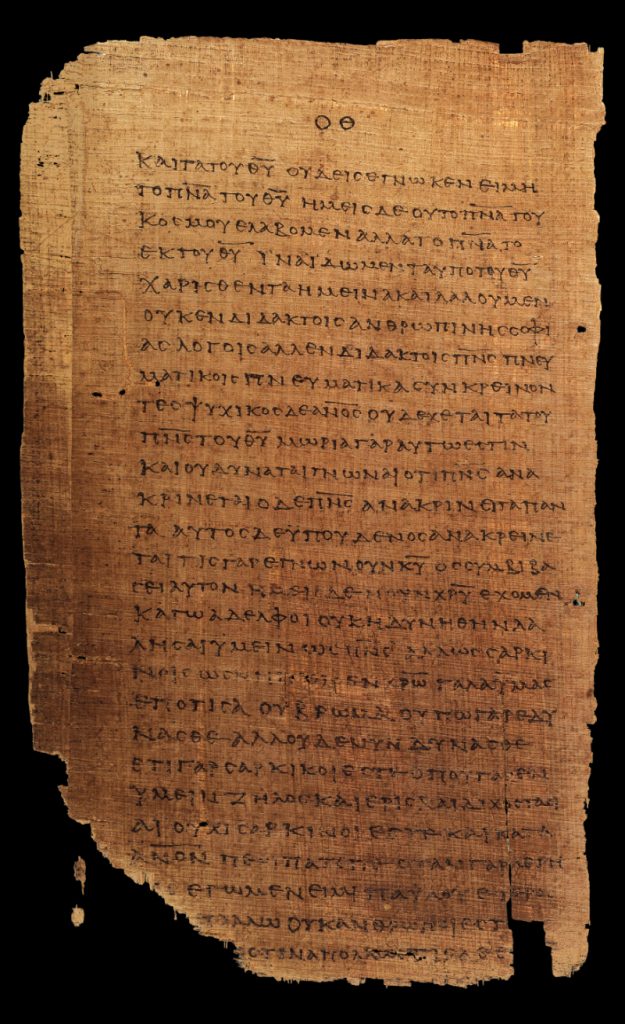 ΟΘ
ΚΑΙΤΑΤΟΥΘ̅Υ̅ ΟΥΔΕΙϹΕΓΝΩΚΕΝΕΙΜΗ
ΤΟΠ̅Ν̅Α̅ΤΟΥΘ̅Υ̅ ΗΜΕΙϹΔΕΟΥΤΟΠ̅Ν̅Α̅ΤΟΥ
ΚΟϹΜΟΥΕΛΑΒΟΜΕΝΑΛΛΑΤΟΠ̅Ν̅Α̅ΤΟ
ΕΚΤΟΥΘ̅Υ̅ ΙΝΑΙΔΩΜΕΝΤΑΥΠΟΤΟΥΘ̅Υ̅
ΧΑΡΙϹΘΕΝΤΑΗΜΕΙΝΑΚΑΙΛΑΛΟΥΜΕΝ
ΟΥΚΕΝΔΙΔΑΚΤΟΙϹΑΝΘΡΩΠΙΝΗϹϹΟΦΙ
ΑϹΛΟΓΟΙϹΑΛΛΕΝΔΙΔΑΚΤΟΙϹΠ̅Ν̅Ϲ̅ΠΝΕΥ
ΜΑΤΙΚΟΙϹΠΝΕΥΜΑΤΙΚΑϹΥΝΚΡΕΙΝΟΝ
ΤΕϹΨΥΧΙΚΟϹΔΕΑ̅Ν̅Ο̅Ϲ̅ΟΥΔΕΧΕΤΑΙΤΑΤΟΥ
Π̅Ν̅Ϲ̅ΤΟΥΘ̅Υ̅ ΜΩΡΙΑΓΑΡΑΥΤΩΕϹΤΙΝ
ΚΑΙΟΥΔΥΝΑΤΑΙΓΝΩΝΑΙΟΤΙΠ̅Ν̅Ϲ̅ ΑΝΑ
ΚΡΙΝΕΤΑΙΟΔΕΠ̅Ν̅Ϲ̅ ΑΝΑΚΡΙΝΕΙΤΑΠΑΝ
ΤΑ ΑΥΤΟϹΔΕΥΠΟΥΔΕΝΟϹΑΝΑΚΡΕΙΝΕ
ΤΑΙΤΙϹΓΑΡΕΓΝΩΝΟΥΝΚ̅Υ̅ ΟϹϹΥΜΒΙΒΑ
ϹΕΙΑΥΤΟΝ ΗΜΕΙϹΔΕΝΟΥΝΧ̅Ρ̅Υ̅ ΕΧΟΜΕΝ
ΚΑΓΩΑΔΕΛΦΟΙΟΥΚΗΔΥΝΗΘΗΝΛΑ
ΛΗϹΑΙΥΜΕΙΝΩϹΠ̅Ν̅Ϲ̅ ΑΛΛΩϹϹΑΡΚΙ
ΝΟΙϹΩϹΝΗΠΙΟΙϹΕΝΧ̅Ρ̅Ω̅ ΓΑΛΑΥΜΑϹ
ΕΠΟΤΙϹΑ ΟΥΒΡΩΜΑ ΟΥΠΩΓΑΡΕΔΥ
ΝΑϹΘΕ ΑΛΛΟΥΔΕΝΥΝ ΔΥΝΑϹΘΕ
ΕΤΙΓΑΡϹΑΡΚΙΚΟΙΕϹΤΕΟΠΟΥΓΑΡΕΝ
ΥΜΕΙΝΖΗΛΟϹΚΑΙΕΡΙϹΚΑΙΔΙΧΟϹΤΑϹΙ
ΑΙΟΥΧΙϹΑΡΚΙΝΟΙΕϹΤΕΚΑΙΚΑΤΑ
Α̅Ν̅Ο̅Ν̅ ΠΕΡΙΠΑΤΕΙΤΕ ΟΤΑΝΓΑΡΛΕΓΗ
ΕΓΩΜΕΝΕΙΜΙΠΑΥΛΟΥ
ΟΥΚΑΝΘΡΩΠΟΙΕϹΤΕ